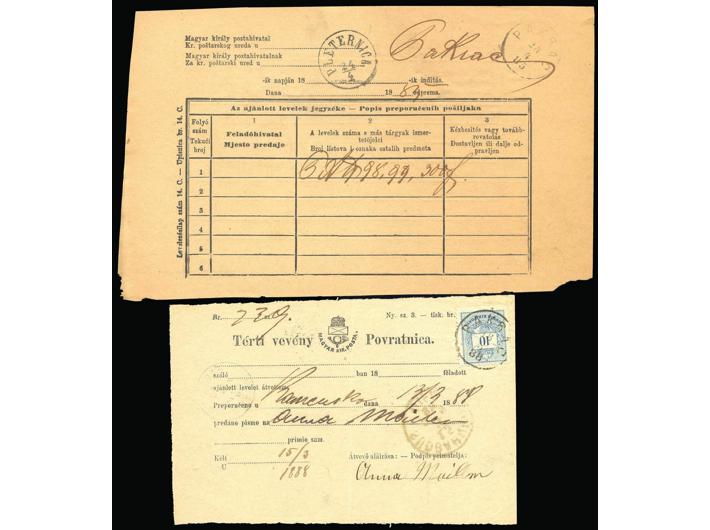 Magyar király postahivatal
Kr. poštarskog ureda u
Magyar király postahivatalnak
Za kr. poštarski ured u
PLETERNICA
Pakrac
-ik napján 18 -ik indítás.
Dana 18 83 odprema.
Levelezésilap szám 14. C. — Uputnica br. 14. C.
Az ajánlott levelek jegyzéke — Popis preporučenih pošiljaka
Folyó szám
Tekući broj
1
Feladóhivatal
Mjesto predaje
2
A levelek száma s más tárgyak ismertetőjelei
Broj listova i oznaka ostalih predmeta
3
Kézbesítés vagy továbbrovatolás
Dostavljen ili dalje odpravljen
1
98, 99, 300
2
2
3
4
5
6
Br. 229. Ny. sz. 3. — tisk. br.
Térti vevény Povratnica.
MAGYAR KIR. POSTA
10
szóló ban 18 föladott
ajánlott levelet átvettem
Preporučeno u dana 13/3 1888
predano pismo na Anna
primio sam.
Kelt 15/3
U 1888
Átvevő aláirása: — Podpis primatelja:
Anna